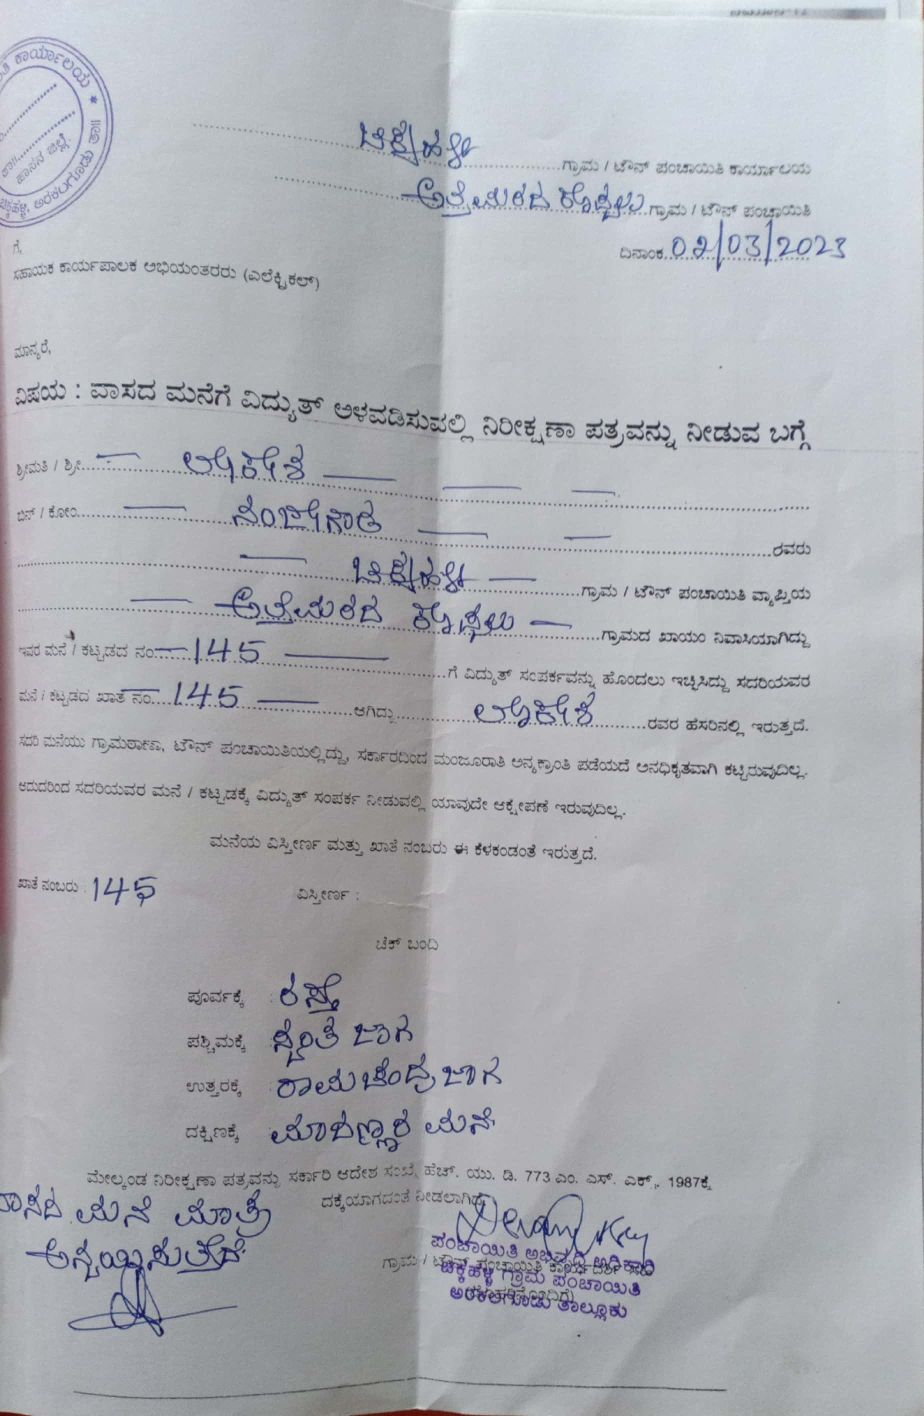 ಕಾರ್ಯಾಲಯ *
ಹಾಸನ ಜಿಲ್ಲೆ.
ಅರಕಲಗೂಡು ತಾ||
ಚಿಕ್ಕಹಳ್ಳಿ ಗ್ರಾಮ / ಟೌನ್ ಪಂಚಾಯಿತಿ ಕಾರ್ಯಾಲಯ
ಅತ್ತಿಮರದ ಕೊಪ್ಪಲು ಗ್ರಾಮ / ಟೌನ್ ಪಂಚಾಯಿತಿ
ದಿನಾಂಕ 02/03/2023
ಗೆ,
ಸಹಾಯಕ ಕಾರ್ಯಪಾಲಕ ಅಭಿಯಂತರರು (ಎಲೆಕ್ಟ್ರಿಕಲ್)
ಮಾನ್ಯರೆ,
ವಿಷಯ : ವಾಸದ ಮನೆಗೆ ವಿದ್ಯುತ್ ಅಳವಡಿಸುವಲ್ಲಿ ನಿರೀಕ್ಷಣಾ ಪತ್ರವನ್ನು ನೀಡುವ ಬಗ್ಗೆ
ಶ್ರೀಮತಿ / ಶ್ರೀ. ಲೋಕೇಶ
ಬಿನ್ / ಕೋಂ. ನಂಜೇಗೌಡ ರವರು
ಚಿಕ್ಕಹಳ್ಳಿ ಗ್ರಾಮ / ಟೌನ್ ಪಂಚಾಯಿತಿ ವ್ಯಾಪ್ತಿಯ
ಅತ್ತಿಮರದ ಕೊಪ್ಪಲು ಗ್ರಾಮದ ಖಾಯಂ ನಿವಾಸಿಯಾಗಿದ್ದು
ಇವರ ಮನೆ / ಕಟ್ಟಡದ ನಂ 145 ಗೆ ವಿದ್ಯುತ್ ಸಂಪರ್ಕವನ್ನು ಹೊಂದಲು ಇಚ್ಛಿಸಿದ್ದು ಸದರಿಯವರ
ಮನೆ / ಕಟ್ಟಡದ ಖಾತೆ ನಂ. 145 ಆಗಿದ್ದು ಲೋಕೇಶ ರವರ ಹೆಸರಿನಲ್ಲಿ ಇರುತ್ತದೆ.
ಸದರಿ ಮನೆಯು ಗ್ರಾಮಠಾಣಾ, ಟೌನ್ ಪಂಚಾಯಿತಿಯಲ್ಲಿದ್ದು, ಸರ್ಕಾರದಿಂದ ಮಂಜೂರಾತಿ ಅನ್ಯಕ್ರಾಂತಿ ಪಡೆಯದೆ ಅನಧಿಕೃತವಾಗಿ ಕಟ್ಟಿರುವುದಿಲ್ಲ.
ಆದುದರಿಂದ ಸದರಿಯವರ ಮನೆ / ಕಟ್ಟಡಕ್ಕೆ ವಿದ್ಯುತ್ ಸಂಪರ್ಕ ನೀಡುವಲ್ಲಿ ಯಾವುದೇ ಆಕ್ಷೇಪಣೆ ಇರುವುದಿಲ್ಲ.
ಮನೆಯ ವಿಸ್ತೀರ್ಣ ಮತ್ತು ಖಾತೆ ನಂಬರು ಈ ಕೆಳಕಂಡಂತೆ ಇರುತ್ತದೆ.
ಖಾತೆ ನಂಬರು : 145 ವಿಸ್ತೀರ್ಣ :
ಚೆಕ್ ಬಂದಿ
ಪೂರ್ವಕ್ಕೆ : ರಸ್ತೆ
ಪಶ್ಚಿಮಕ್ಕೆ : ಸ್ವಂತ ಜಾಗ
ಉತ್ತರಕ್ಕೆ : ರಾಮಚಂದ್ರ ಜಾಗ
ದಕ್ಷಿಣಕ್ಕೆ : ಮನೆ
ಮೇಲ್ಕಂಡ ನಿರೀಕ್ಷಣಾ ಪತ್ರವನ್ನು ಸರ್ಕಾರಿ ಆದೇಶ ಸಂಖ್ಯೆ ಹೆಚ್. ಯು. ಡಿ. 773 ಎಂ. ಎಸ್. ಎಕ್ಸ್, 1987ಕ್ಕೆ
ದಕ್ಕೆಯಾಗದಂತೆ ನೀಡಲಾಗಿದೆ
ವಾಸದ ಮನೆ ಮಾತ್ರ
ಅನ್ವಯಿಸುತ್ತದೆ
ಗ್ರಾಮ / ಟೌನ್ ಪಂಚಾಯಿತಿ ಕಾರ್ಯದರ್ಶಿ ಸಹಿ
(ಮೊಹರಿನೊಂದಿಗೆ)
ಪಂಚಾಯಿತಿ ಅಭಿವೃದ್ಧಿ ಅಧಿಕಾರಿ
ಚಿಕ್ಕಹಳ್ಳಿ ಗ್ರಾಮ ಪಂಚಾಯಿತಿ
ಅರಕಲಗೂಡು ತಾಲ್ಲೂಕು